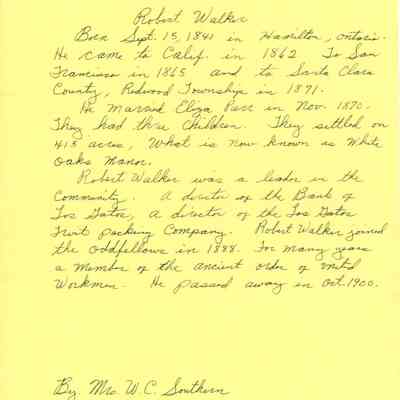 Robert Walker
Born Sept. 15, 1841 in Hamilton, Ontario.
He came to Calif. in 1862 To San
Francisco in 1865 and to Santa Clara
County, Redwood Township in 1871.
He married Eliza Parr in Nov. 1870.
They had three children. They settled on
413 acres, What is now known as White
Oaks Manor.
Robert Walker was a leader in the
Community. A director of the Bank of
Los Gatos, A director of the Los Gatos
Fruit packing Company. Robert Walker joined
the Oddfellows in 1888. For many years
a member of the ancient order of United
Workmen. He passed away in Oct. 1900.
By, Mrs. W. C. Southern